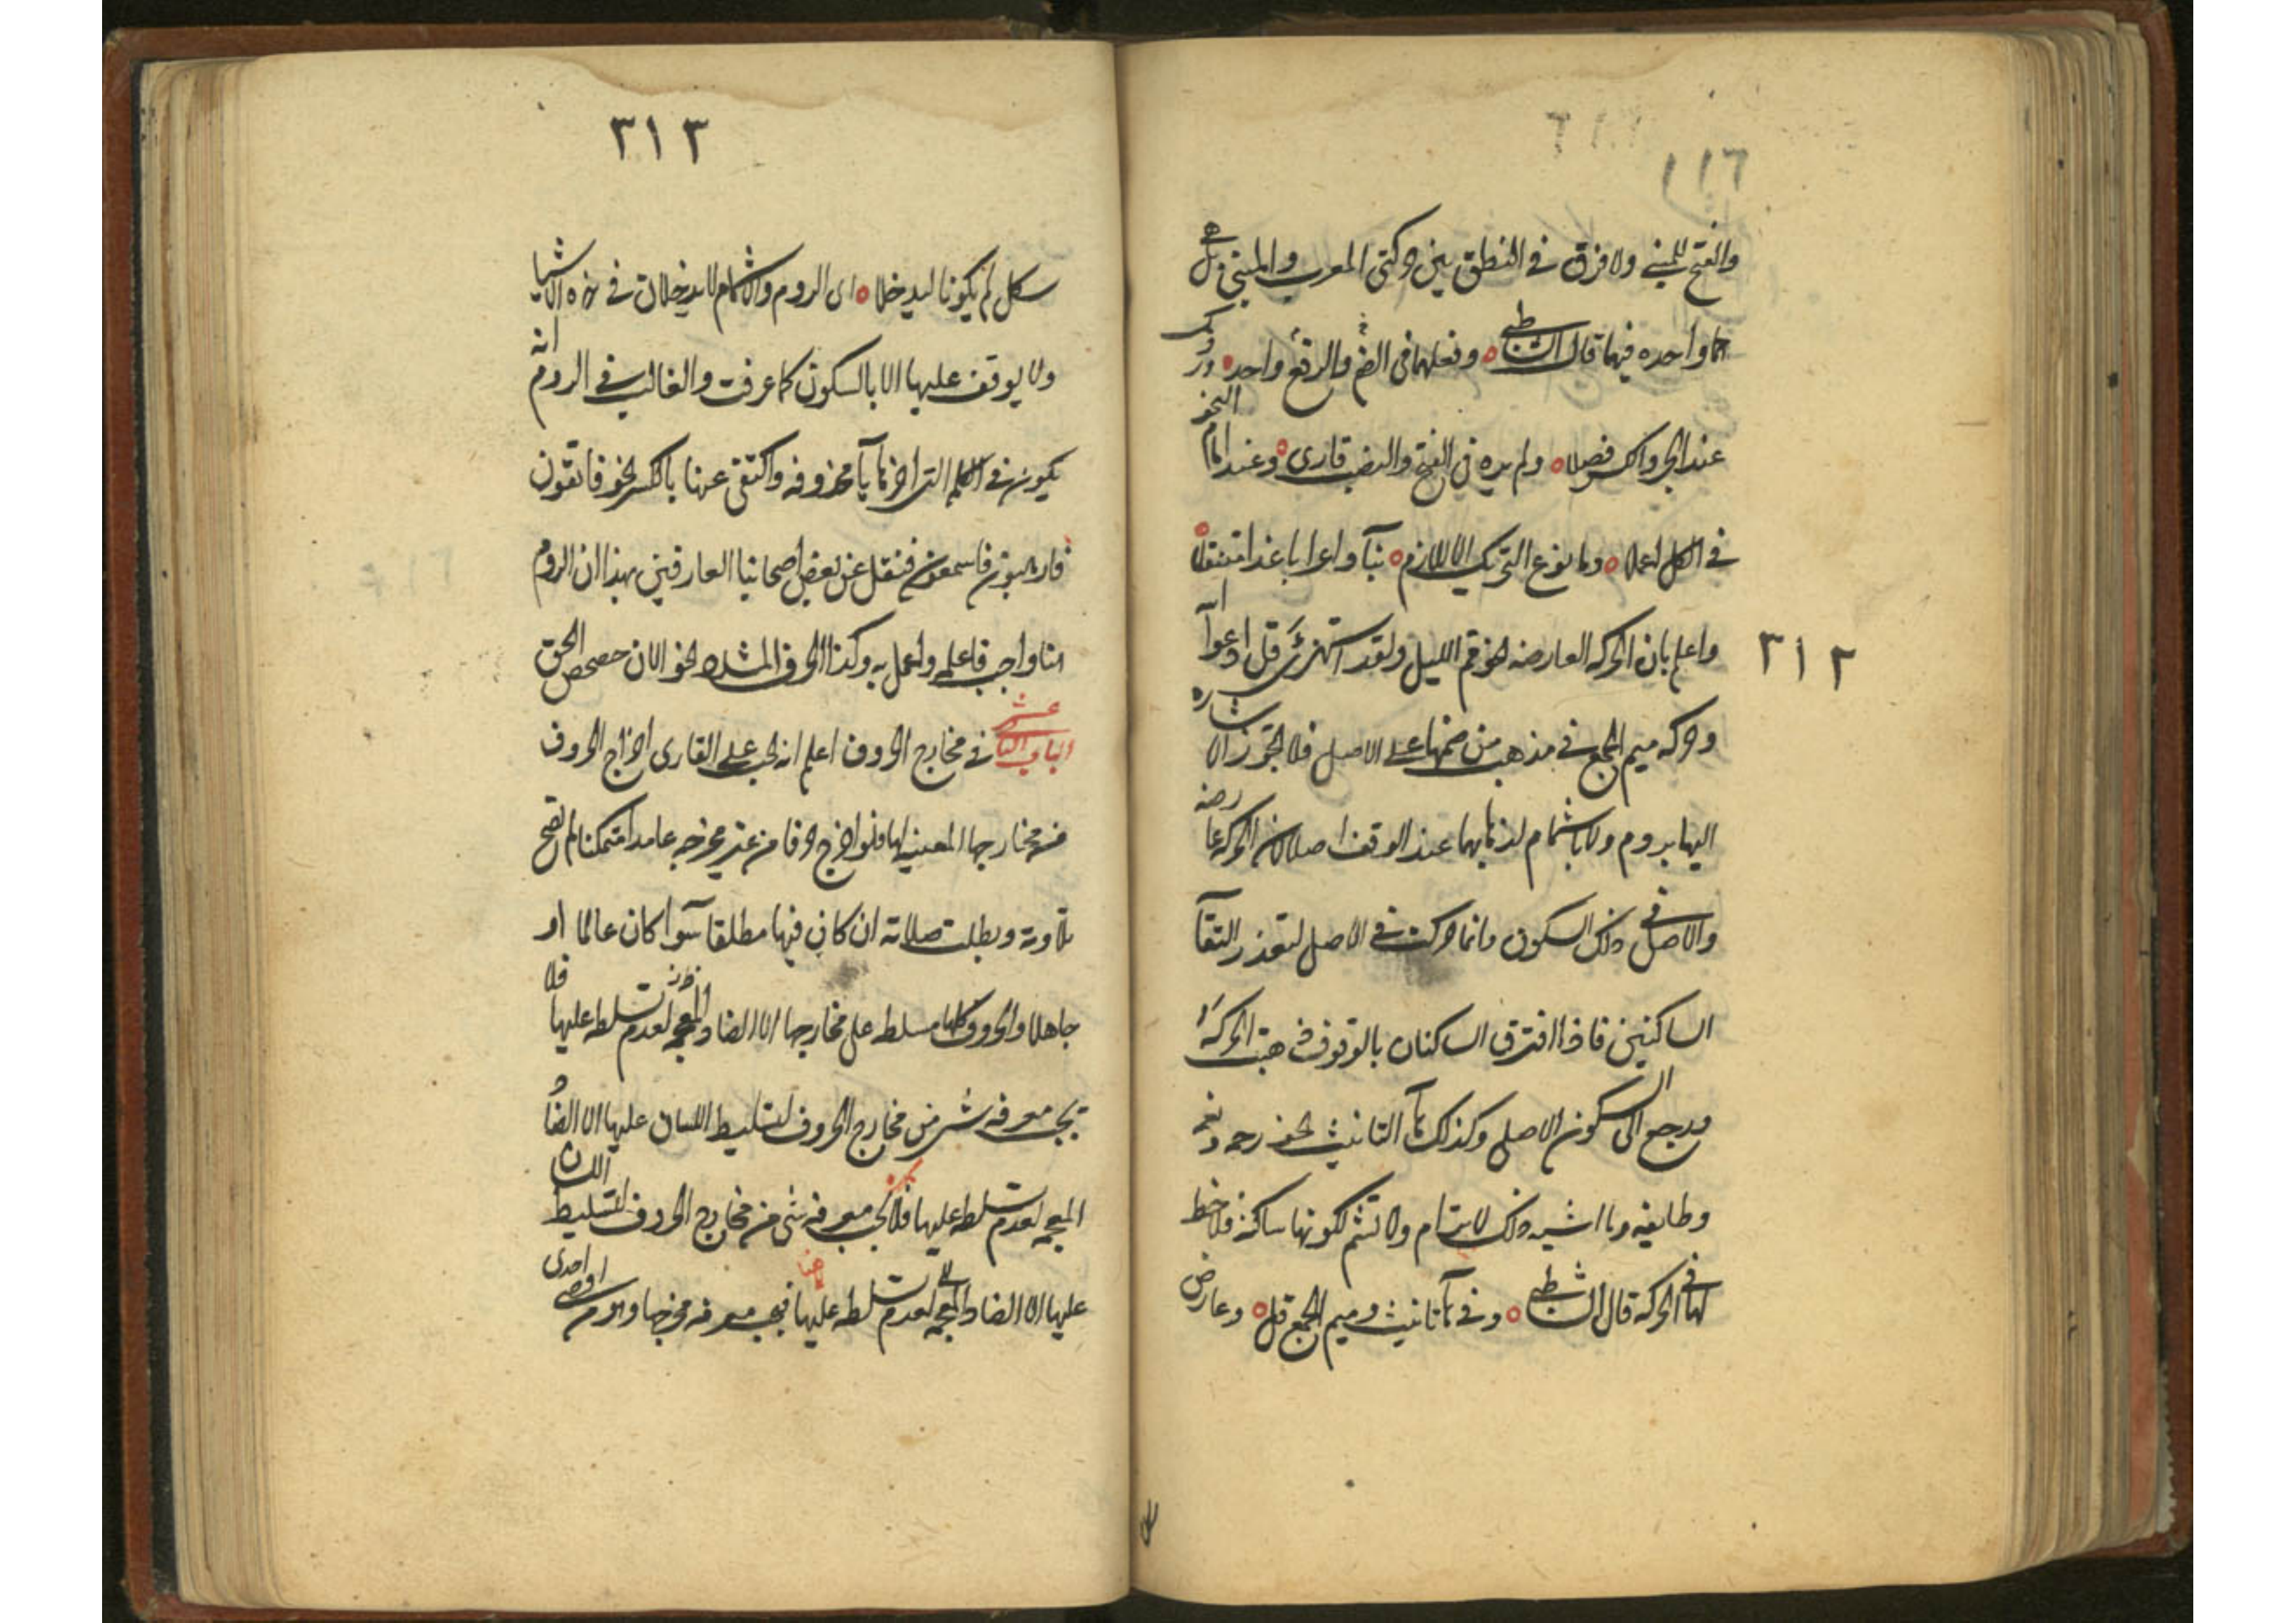 ١١٦
والفتح للمبنى ولا فرق فى النطق بين حركتى المعرب والمبنى وهل
هما واحده فيهما قال الشاطبى ه وفعلهما فى الضم والرفع واحد ه ورومك
عند الجر والكسر وصلا ه ولم يره فى الفتح والنصب قارئ ه وعند امام النحو
فى الكل اعملا ه وما نوع التحريك الا للازم ه بناء واعرابا غدا متنقلا ه
٣١٢
واعلم بان الحركه العارضه نحو قم الليل ولقد استهزئ قل ادعوا
وحركه ميم الجمع فى مذهب من ضمها على الاصل فلا تجوز الاشاره
اليها بروم ولا باشمام لذهابهما عند الوقف اصلا لان الحركه عارضه
والاصل فى ذلك السكون وانما حركت فى الاصل لتعذر التقآ
الساكنين فاذا افترق الساكنان بالوقوف ذهبت الحركة
ورجع الى السكون الاصلى وكذلك تآ التانيث نحو رحمه ونعمه
وطايفه وما اشبه ذلك لا ترام ولا تشم لكونها ساكنة فلا حظ
لها فى الحركة قال الشاطبى ه وفى تآ تانيث وميم الجمع قل ه وعارض
٣١٣
شكل لم يكونا ليدخلا ه اى الروم والاشمام لا يدخلان فى هذه الاشيا
ولا يوقف عليها الا بالسكون كما عرفت والغالب فى الروم انه
يكون فى الكلم التى اخرها يآ محذوفه واكتفى عنها بالكسر نحو فاتقون
فارهبون فاسمعون فنقل عن بعض اصحابنا العارفين بهذا ان الروم
هنا واجب فاعلم واعمل به وكذا الحرف المشدد نحو الان حصحص الحق
الباب الثانى عشر فى مخارج الحروف اعلم انه يجب على القارى اخراج الحروف
من مخارجها المعينه لها فلو اخرج حرفا من غير مخرجه عامدا متمكنا لم تصح
تلاوته وبطلت صلاته ان كان فيها مطلقا سوآ كان عالما او
جاهلا والحروف كلها مسلطه على مخارجها الا الضاد المعجمه لعدم تسلطه عليها فلا
يجب معرفه شى من مخارج الحروف لتسليط اللسان عليها الا الضاد
المعجمه لعدم تسلطه عليها فلا يجب معرفه شى من مخارج الحروف لتسليط اللسان
عليها الا الضاد المعجمه لعدم تسلطه عليها فيجب معرفه مخرجها وهو من احدى